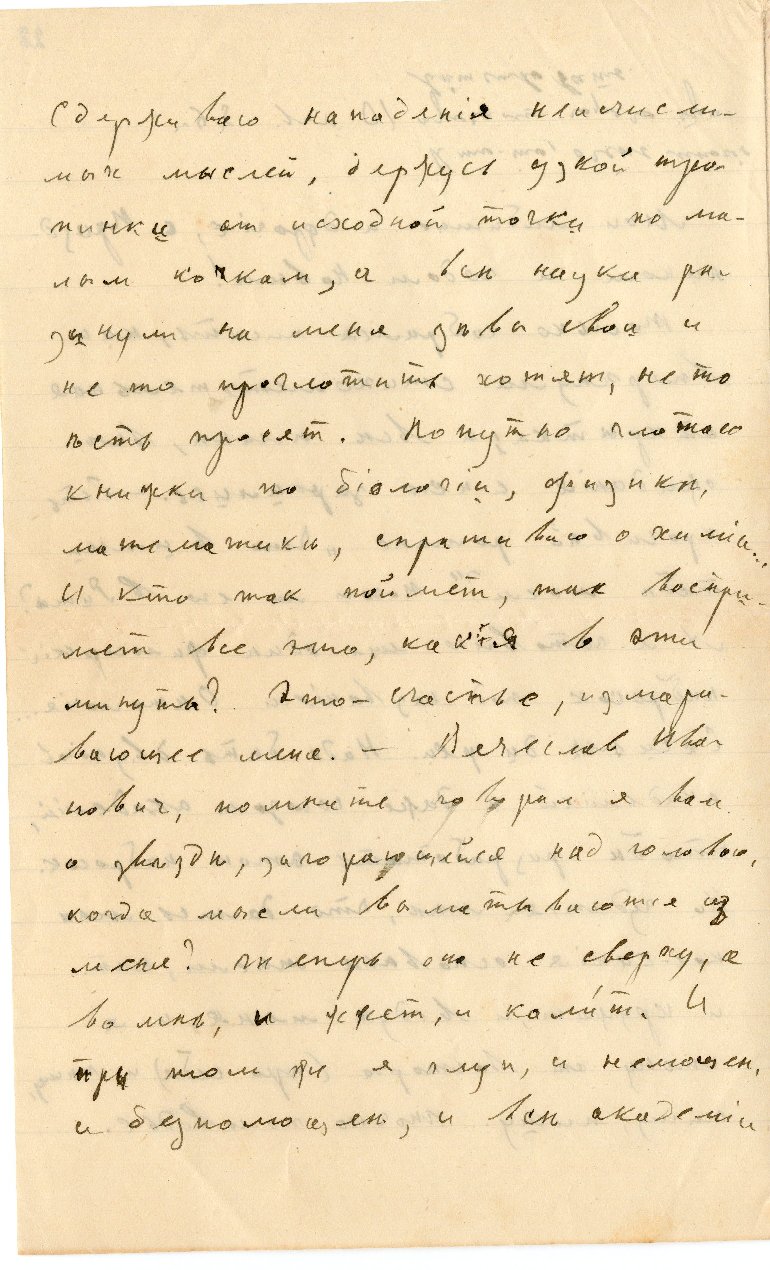 Сдерживаю нападенія неисчисли-
мых мыслей, держусь узкой тро-
пинки от исходной точки по ма-
лым кочкам, а всѣ науки ра-
зинули на меня зѣвы свои и
не то проглотить хотят, не то
ѣсть просят. Попутно глотаю
книжки по біологіи, физикѣ,
математикѣ, спрашиваю о химіи...
И кто так поймет, так воспри-
мет все это, как я в эти
минуты? Это – счастье, измары-
вающее меня. – Вячеслав Ива-
нович, помните говорил я вам
о звѣздѣ, загорающейся над головою,
когда мысли выматываются из
меня? Теперь она не сверху, а
во мнѣ, и жжет, и калит. И
при том же я глуп, и немощен,
и безпомощен, и всѣ академіи